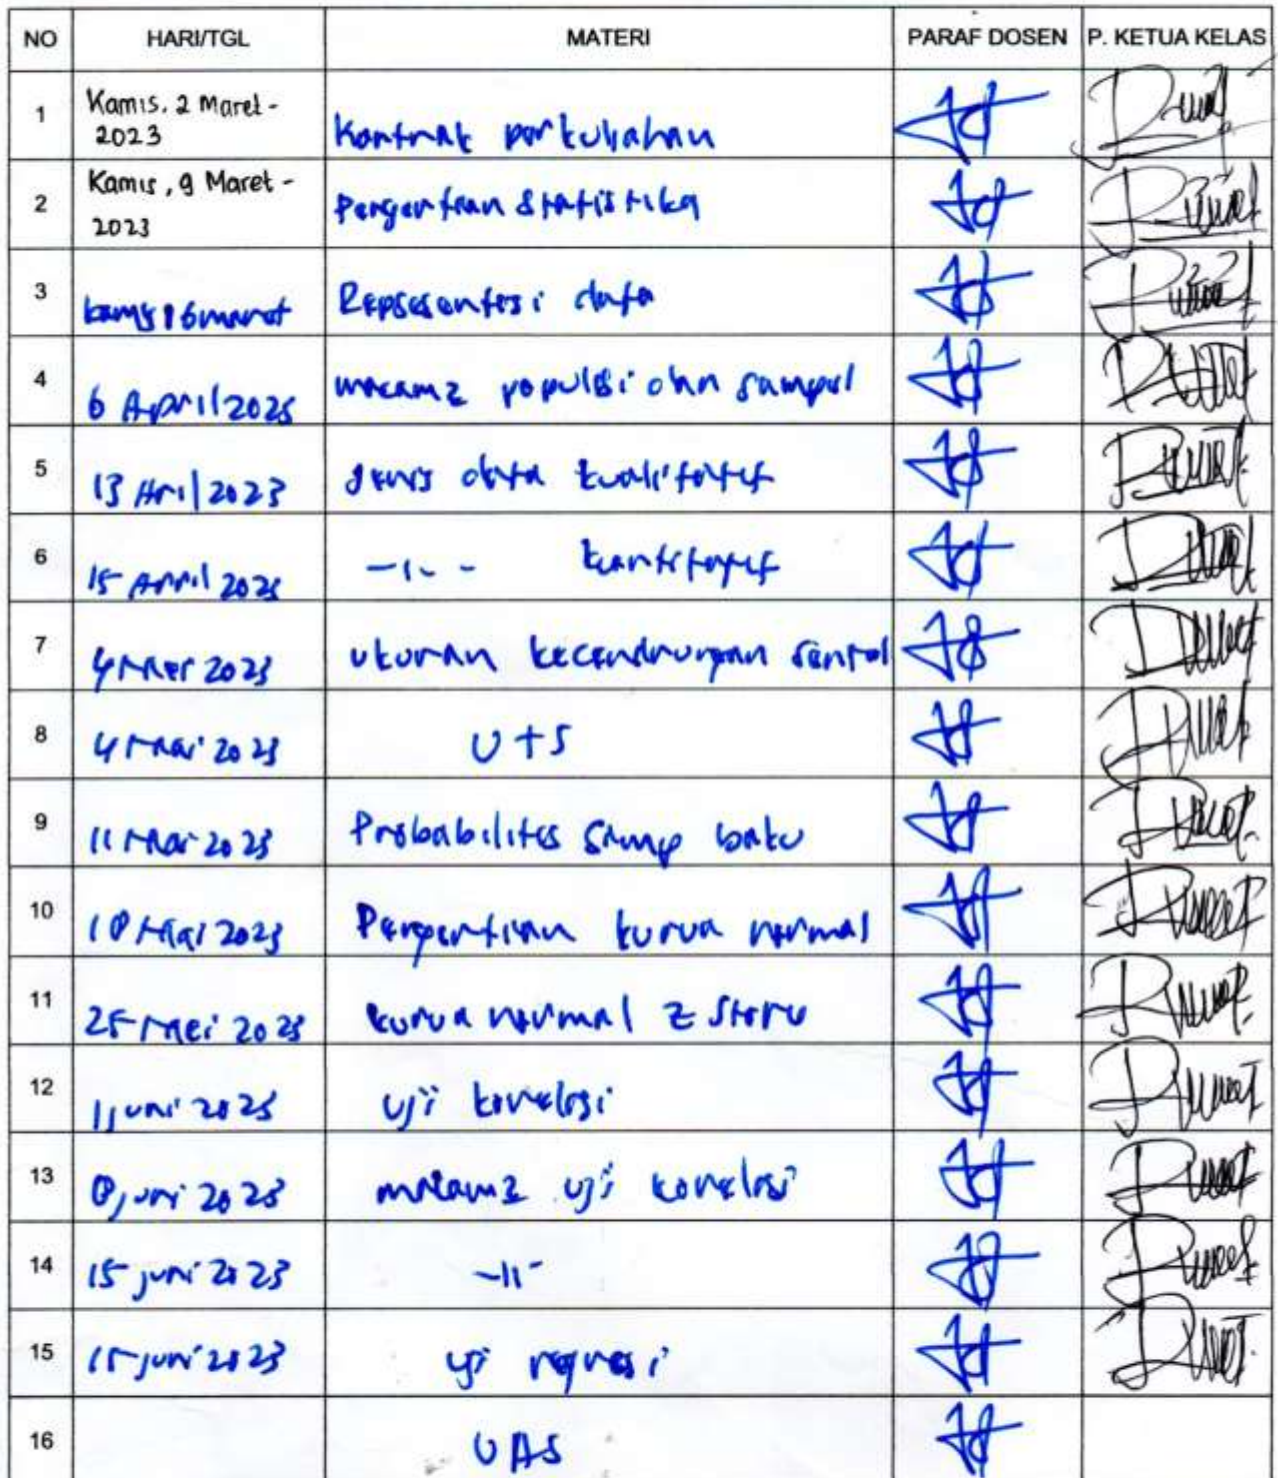 NO HARI/TGL MATERI PARAF DOSEN P. KETUA KELAS
1 Kamis, 2 Maret - 2023 Kontrak perkuliahan
2 Kamis, 9 Maret - 2023 Pengertian Statistika
3 kamis 16 maret Representasi data
4 6 April 2023 macam2 populsi dan sampel
5 13 Aril 2023 Jenis data kualitatif
6 15 April 2023 -ıı- kuantitatif
7 4 Mei 2023 ukuran kecendrungan sentral
8 4 Mei 2023 UTS
9 11 Mei 2023 Probabilitas Simp baku
10 18 Mei 2023 Pengertian kurva normal
11 25 Mei 2023 kurva normal Z
12 1 juni 2023 uji korelasi
13 8 juni 2023 macam2 uji korelasi
14 15 juni 2023 -ıı-
15 15 juni 2023 uji regresi
16 UAS